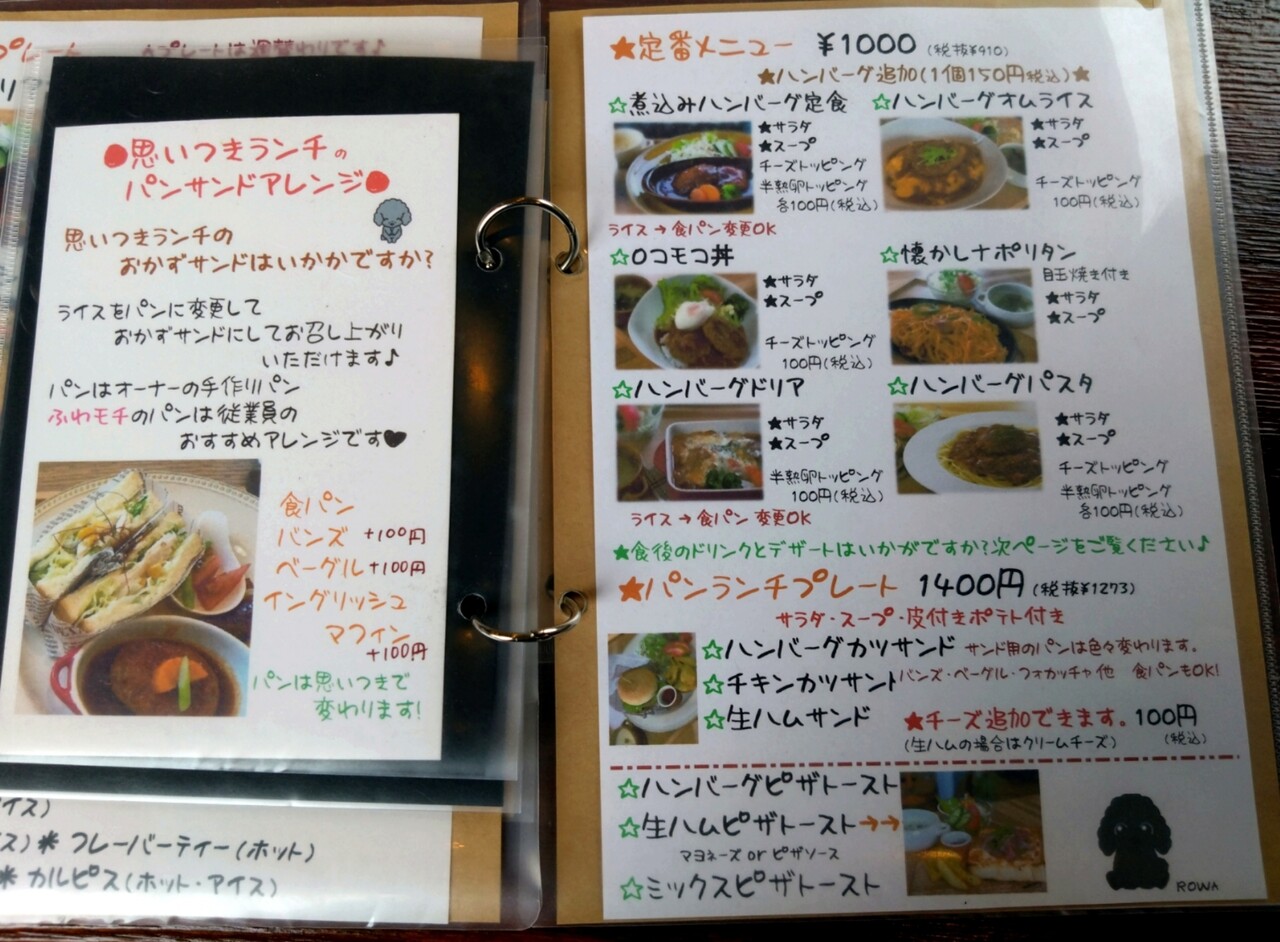 プレートは週替わりです♪
●思いつきランチの
パンサンドアレンジ●
思いつきランチの
おかずサンドはいかかですか?
ライスをパンに変更して
おかずサンドにしてお召し上がり
いただけます♪
パンはオーナーの手作りパン
ふわモチのパンは従業員の
おすすめアレンジです♥
食パン
バンズ +100円
ベーグル +100円
イングリッシュ
マフィン
+100円
パンは思いつきで
変わります!
イス)
ス)＊フレーバーティー(ホット)
＊カルピス(ホット・アイス)
★定番メニュー ¥1000 (税抜¥910)
★ハンバーグ追加(1個150円税込)★
☆煮込みハンバーグ定食
★サラダ
★スープ
チーズトッピング
半熟卵トッピング
各100円(税込)
ライス→食パン変更OK
☆ハンバーグオムライス
★サラダ
★スープ
チーズトッピング
100円(税込)
☆ロコモコ丼
★サラダ
★スープ
チーズトッピング
100円(税込)
☆懐かしナポリタン
目玉焼き付き
★サラダ
★スープ
☆ハンバーグドリア
★サラダ
★スープ
半熟卵トッピング
100円(税込)
ライス→食パン変更OK
☆ハンバーグパスタ
★サラダ
★スープ
チーズトッピング
半熟卵トッピング
各100円(税込)
★食後のドリンクとデザートはいかがですか?次ページをご覧ください♪
★パンランチプレート 1400円 (税抜¥1273)
サラダ・スープ・皮付きポテト付き
☆ハンバーグカツサンド サンド用のパンは色々変わります。
☆チキンカツサンド バンズ・ベーグル・フォカッチャ他 食パンもOK!
☆生ハムサンド ★チーズ追加できます。100円
(生ハムの場合はクリームチーズ) (税込)
☆ハンバーグピザトースト
☆生ハムピザトースト→→
マヨネーズ or ピザソース
☆ミックスピザトースト
ROWA